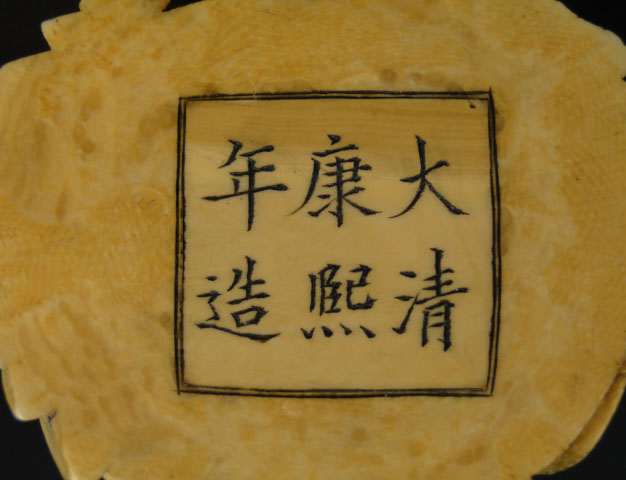 大清
康熙
年造